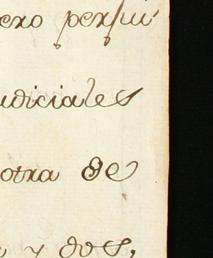 ero perjui
udiciales
otra de
y dos,